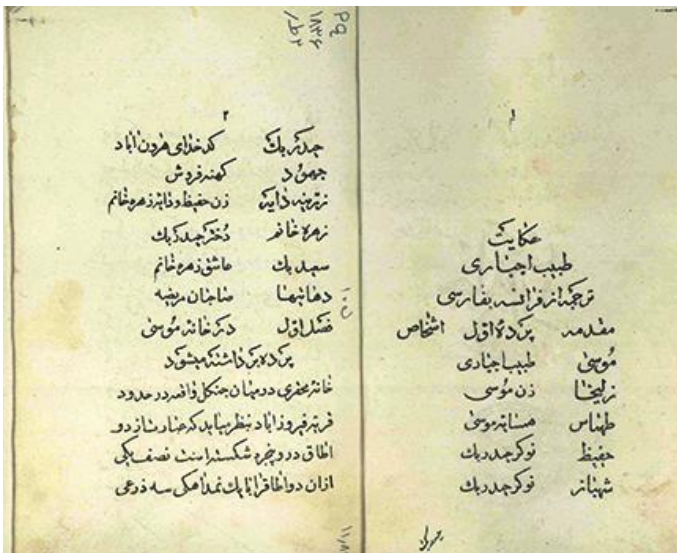 ۱
حکایت
طبیب اجباری
ترجمه از فرانسه بفارسی
مقدمه پرده اول اشخاص
موسی طبیب اجباری
زلیخا زن موسی
طهماس همسایه موسی
حفیظ نوکر حیدر بک
شهباز نوکر حیدر بک
۲
حیدر بک کدخدای هرون اباد
جهود کهنه فروش
نرجه دایه زن حفیظ و دایه زهره خانم
زهره خانم دختر حیدر بک
سعید بک عاشق زهره خانم
دهاتیها صاحبان مریضه
فصل اول در خانه موسی
پرده برداشته میشود
خانه محقری در میان جنکل واقعه در حدود
قریه فیروزاباد بنظر میاید که عبارتست از دو
اطاق در و پنجره شکسته است نصف یکی
ازان دو اطاقرا با یک نمد اهکی سه ذرعی
PQ
۱۸۳۶
۲ط/